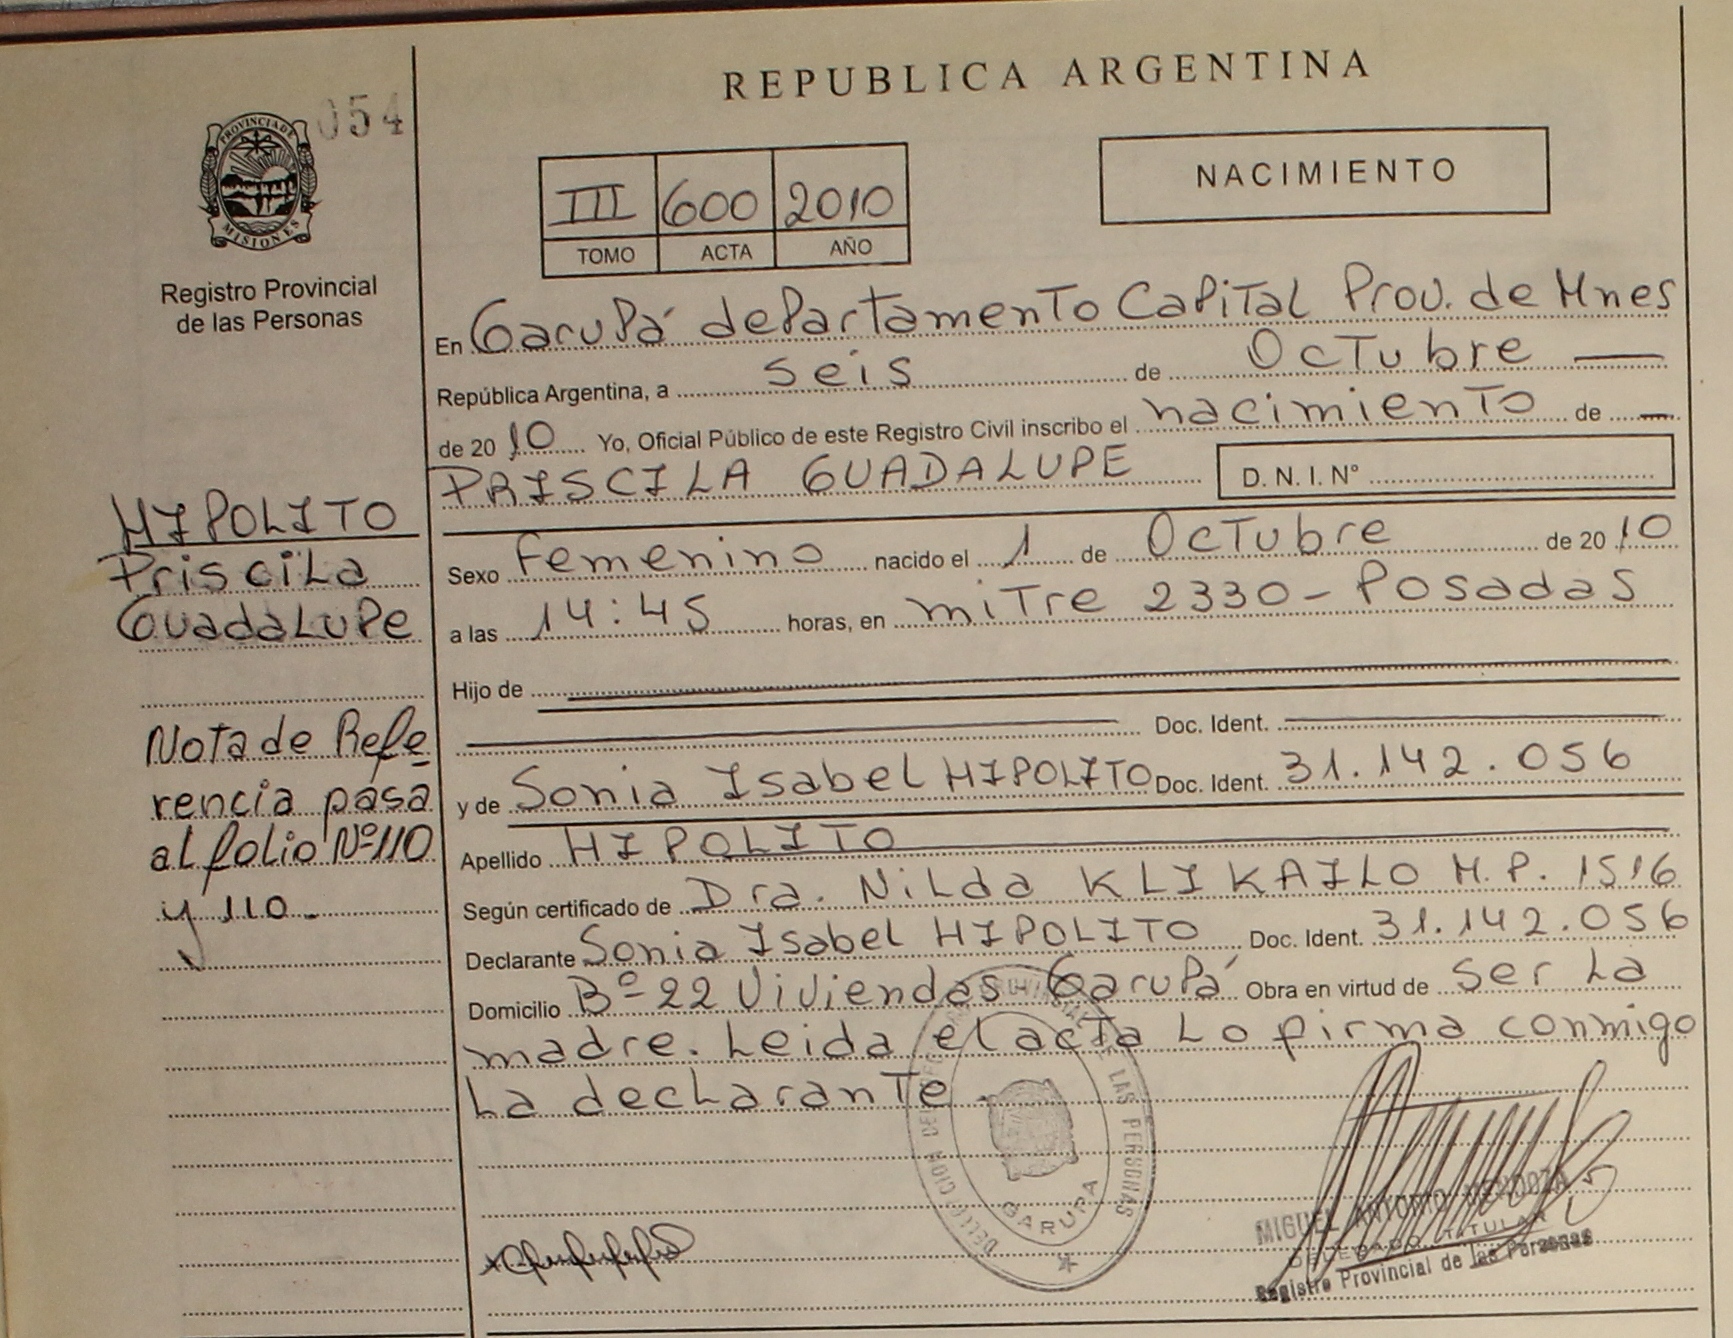 REPUBLICA ARGENTINA
054
PROVINCIA DE MISIONES
Registro Provincial
de las Personas
III 600 2010
TOMO ACTA AÑO
NACIMIENTO
En Garupá departamento Capital Prov. de Mnes
República Argentina, a seis de Octubre
de 2010 Yo, Oficial Público de este Registro Civil inscribo el nacimiento de
PRISCILA GUADALUPE D.N.I. Nº
HIPOLITO
Priscila
Guadalupe
Sexo Femenino nacido el 1 de Octubre de 2010
a las 14:45 horas, en mitre 2330 - Posadas
Hijo de
Doc. Ident.
Nota de Refe
rencia pasa
al folio Nº 110
y 110.
y de Sonia Isabel HIPOLITO Doc. Ident. 31.142.056
Apellido HIPOLITO
Según certificado de Dra. Nilda KLIKAILO M.P. 1516
Declarante Sonia Isabel HIPOLITO Doc. Ident. 31.142.056
Domicilio Bº 22 Viviendas - Garupá Obra en virtud de ser la
madre. Leida el acta lo firma conmigo
la declarante.
DE LAS PERSONAS
GARUPA
MIGUEL ANTONIO MENDOZA
DELEGADO TITULAR
Registro Provincial de las Personas